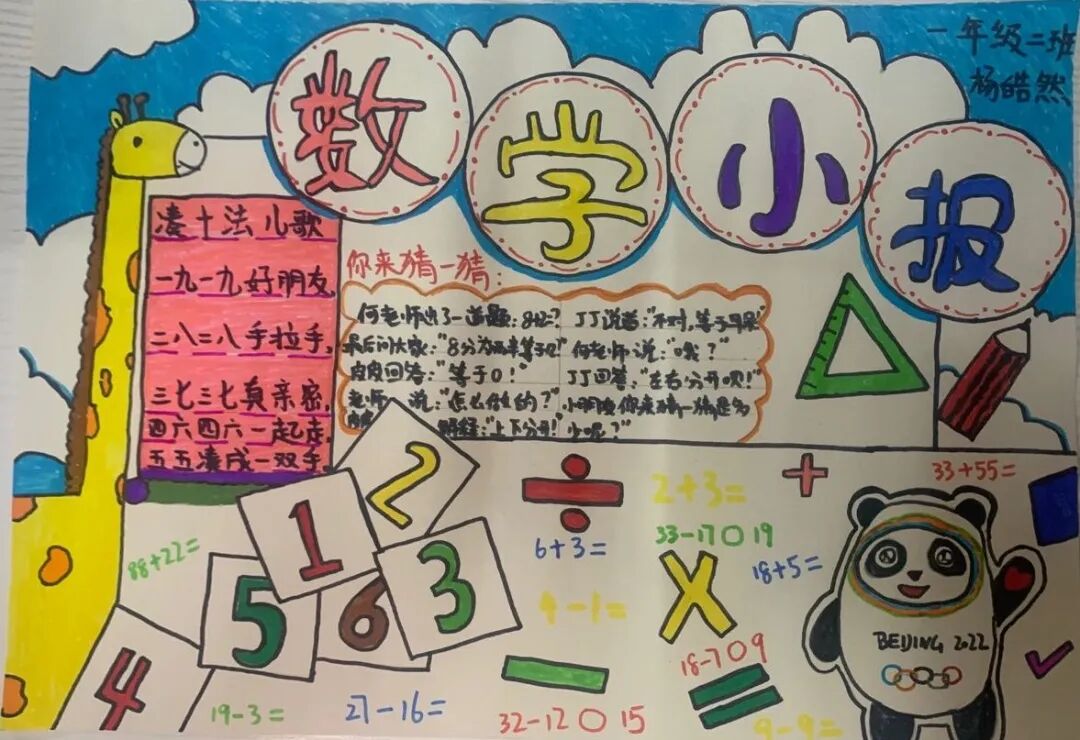 一年级二班
杨皓然
数学小报
凑十法儿歌
一九一九好朋友,
二八二八手拉手,
三七三七真亲密,
四六四六一起走,
五五凑成一双手。
你来猜一猜:
何老师出了一道题:8÷2?
最后问大家:"8分为两半等于
皮皮回答:"等于0!"
老师 说:"怎么做的?"
"上下分开!
JJ说着:"不对,等于
何老师说:"哦?"
JJ回答:"左右分开呗!"
小朋友你来猜一猜是多
少呢?"
÷
2+3=
+
33+55=
1
2
3
4
5
6
88+22=
6+3=
33-17○19
18+5=
4-1=
×
18-7○9
BEIJING 2022
-
=
19-3=
27-16=
32-12○15
9-9=